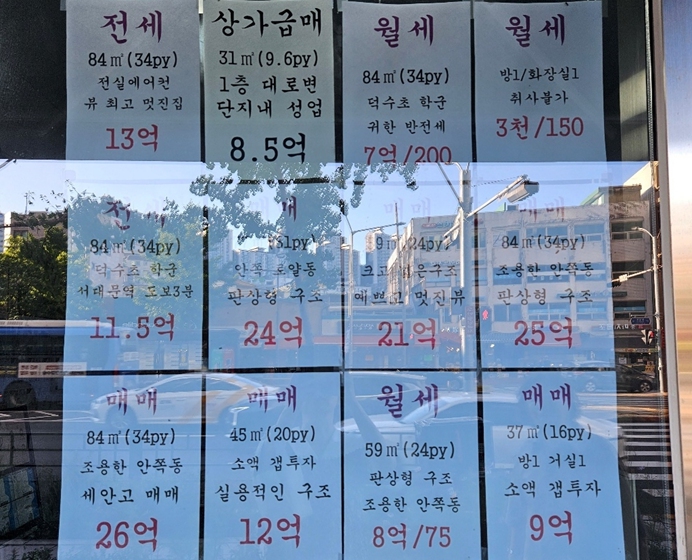 전세
84㎡(34py)
전실에어컨
뷰 최고 멋진집
13억
상가급매
31㎡(9.6py)
1층 대로변
단지내 성업
8.5억
월세
84㎡(34py)
덕수초 학군
귀한 반전세
7억/200
월세
방1/화장실1
취사불가
3천/150
전세
84㎡(34py)
덕수초 학군
서대문역 도보3분
11.5억
매매
안쪽 로얄동
판상형 구조
24억
매매
(24py)
예쁘고 멋진뷰
21억
매매
84㎡(34py)
조용한 안쪽동
판상형 구조
25억
매매
84㎡(34py)
조용한 안쪽동
세안고 매매
26억
매매
45㎡(20py)
소액 갭투자
실용적인 구조
12억
월세
59㎡(24py)
판상형 구조
조용한 안쪽동
8억/75
매매
37㎡(16py)
방1 거실1
소액 갭투자
9억